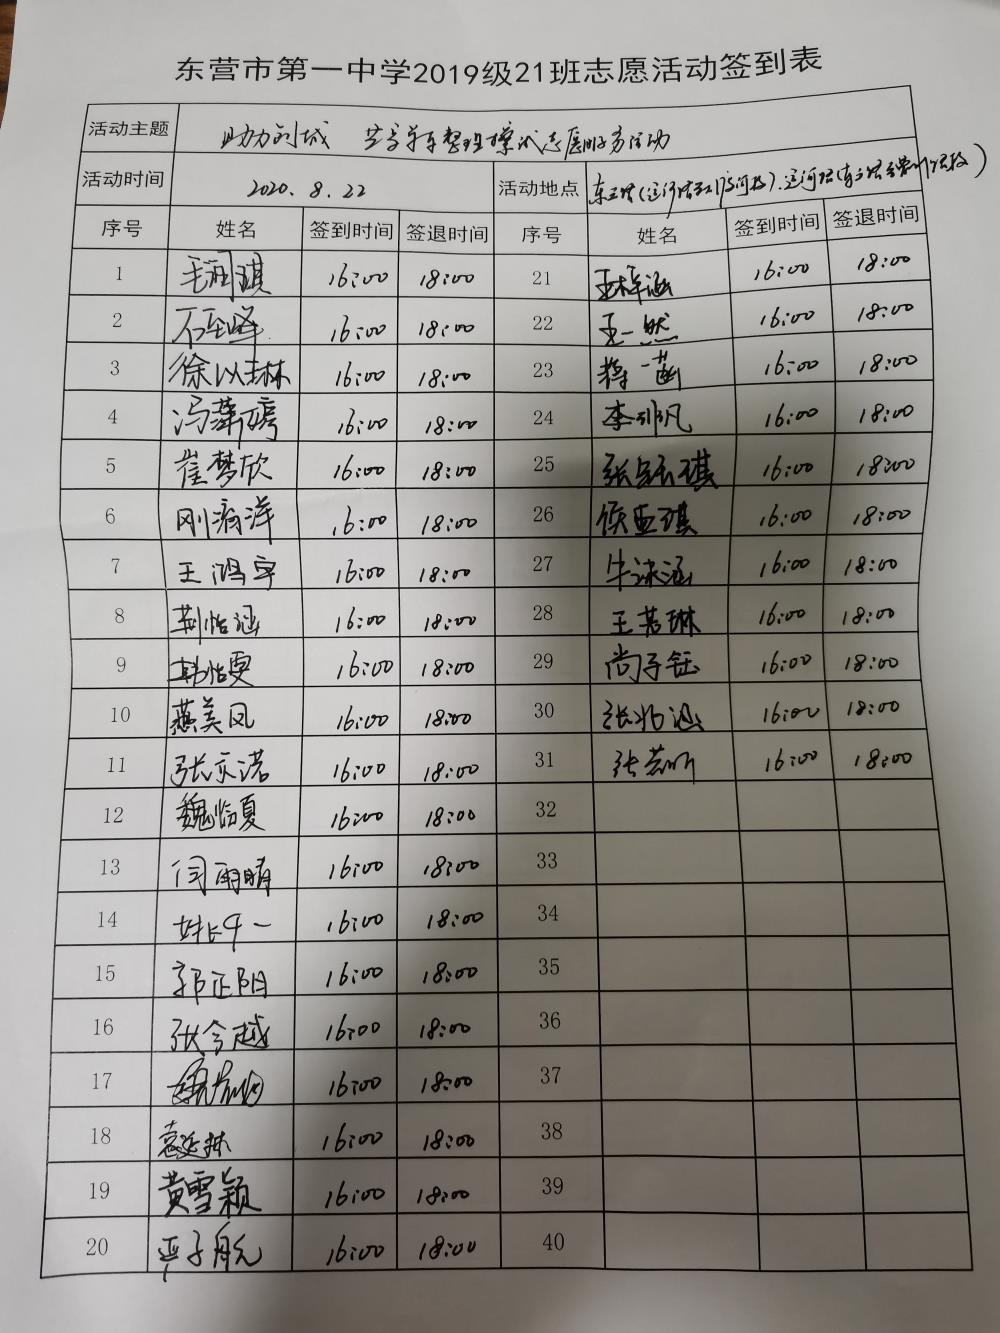 东营市第一中学2019级21班志愿活动签到表
活动主题 助力创城 共享单车整理擦拭志愿服务活动
活动时间 2020.8.22 活动地点
序号 姓名 签到时间 签退时间 序号 姓名 签到时间 签退时间
1 毛雨琪 16:00 18:00 21 王梓涵 16:00 18:00
2 石至峰 16:00 18:00 22 王一然 16:00 18:00
3 徐以琳 16:00 18:00 23 蒋一菡 16:00 18:00
4 冯 16:00 18:00 24 李 凡 16:00 18:00
5 崔梦欣 16:00 18:00 25 张钰琪 16:00 18:00
6 刚 洋 16:00 18:00 26 侯亚琪 16:00 18:00
7 王鸿宇 16:00 18:00 27 牛泳涵 16:00 18:00
8 荆怡涵 16:00 18:00 28 王若琳 16:00 18:00
9 韩怡雯 16:00 18:00 29 尚子钰 16:00 18:00
10 燕美凤 16:00 18:00 30 张兆涵 16:00 18:00
11 张亦诺 16:00 18:00 31 张芸昕 16:00 18:00
12 魏临夏 16:00 18:00 32
13 闫雨晴 16:00 18:00 33
14 一 16:00 18:00 34
15 郭正阳 16:00 18:00 35
16 张今越 16:00 18:00 36
17 16:00 18:00 37
18 袁延琳 16:00 18:00 38
19 黄雪颖 16:00 18:00 39
20 严子航 16:00 18:00 40